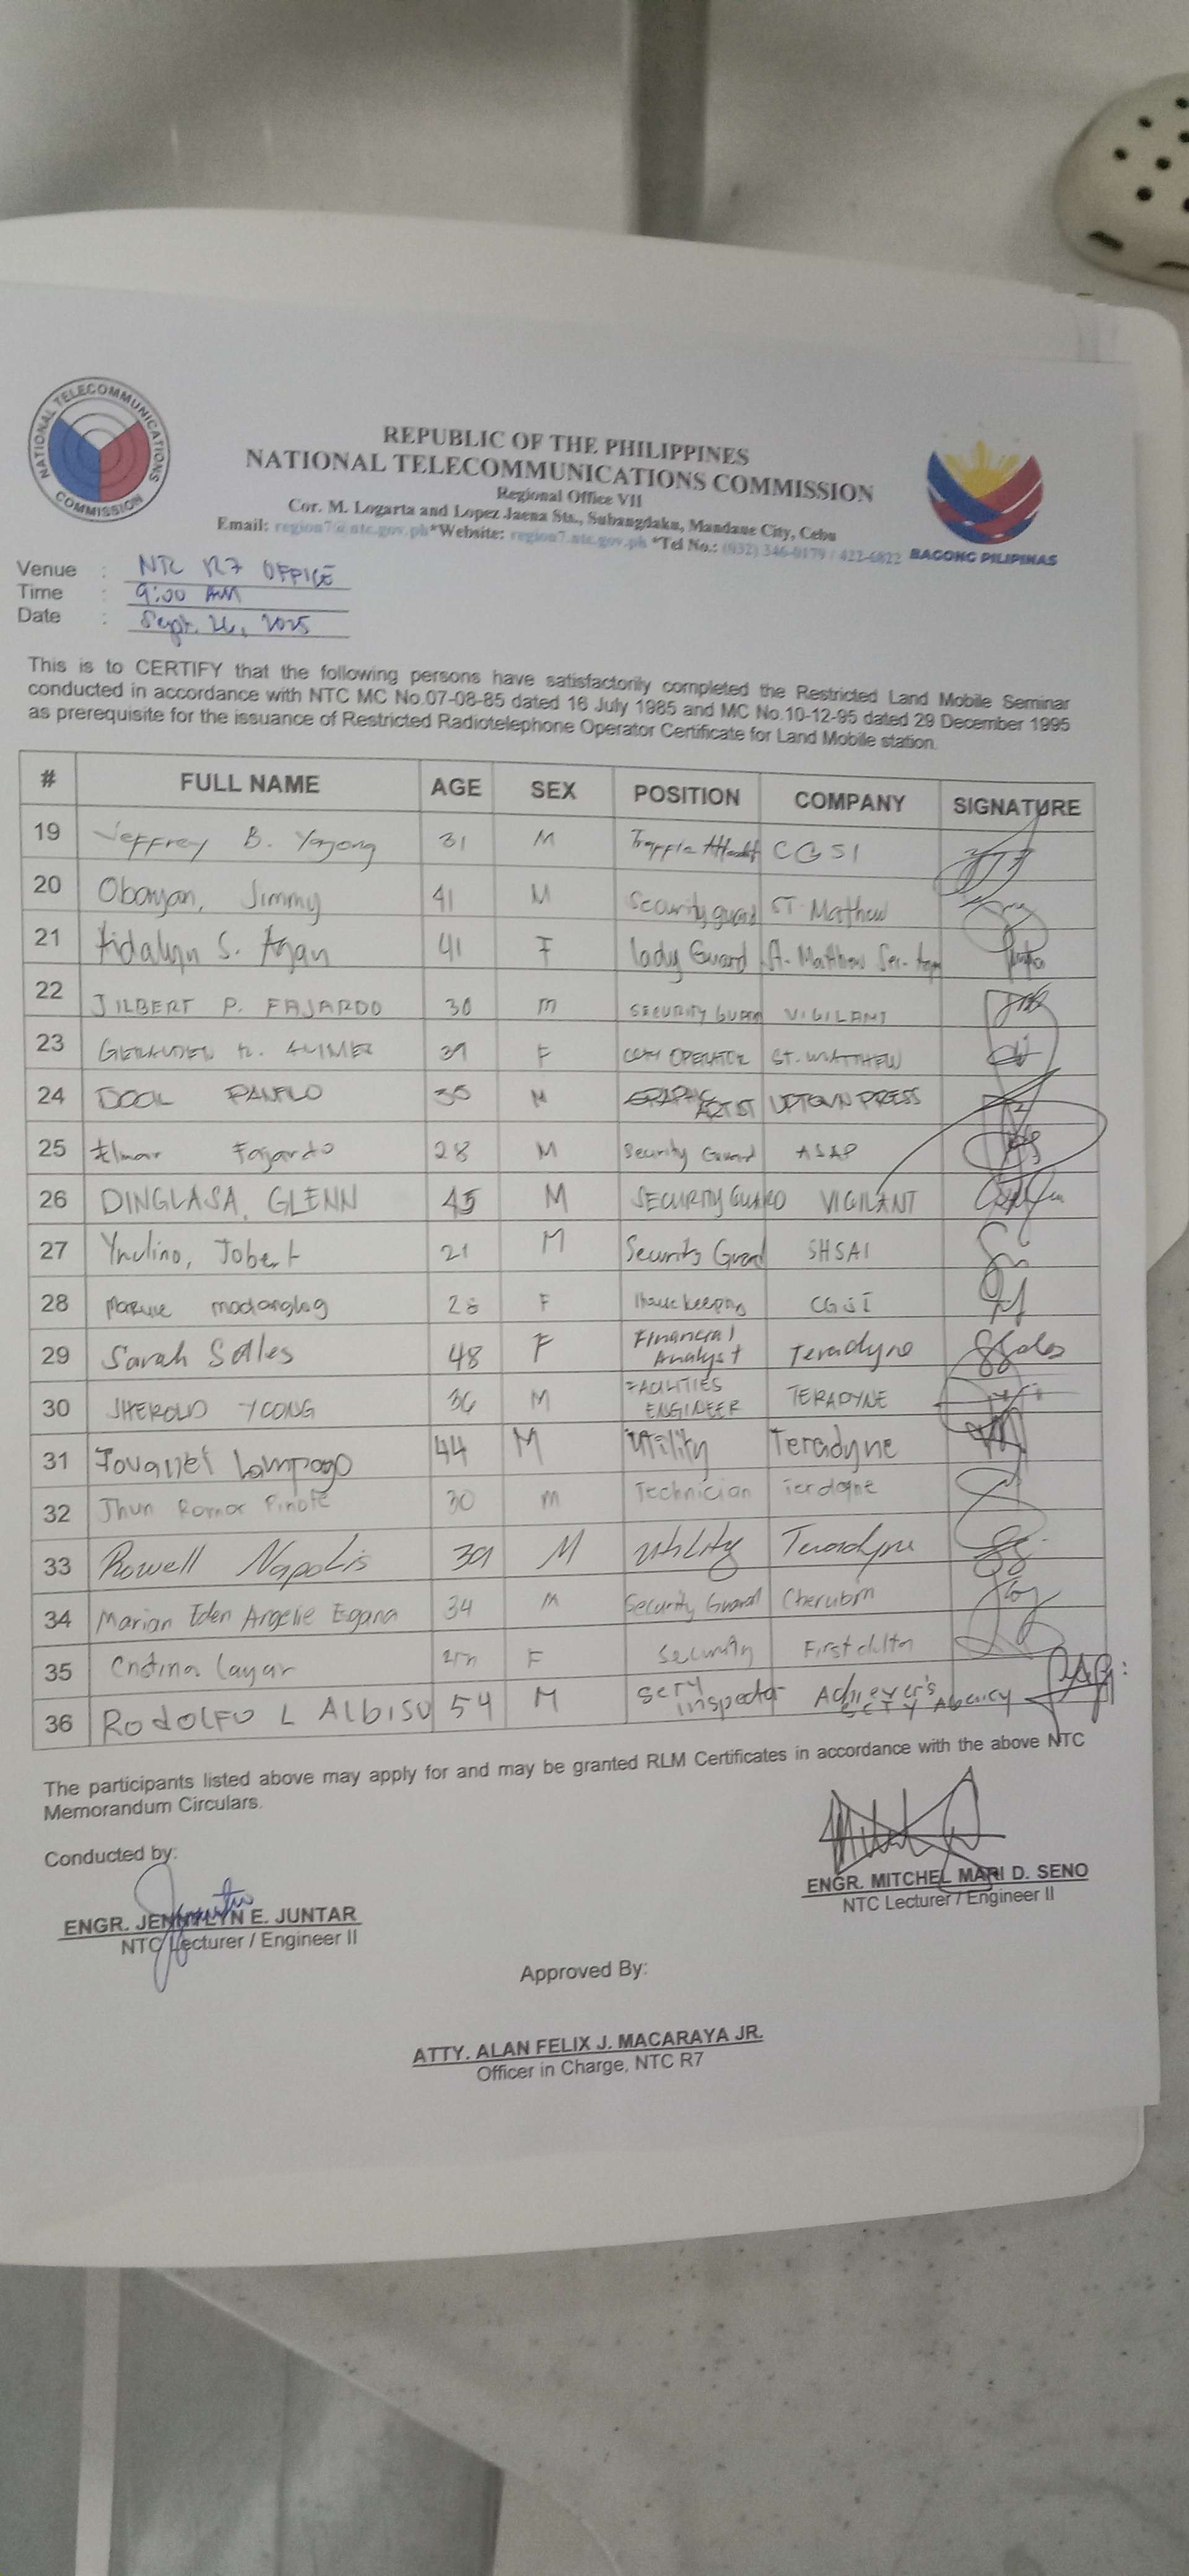 NATIONAL TELECOMMUNICATIONS COMMISSION
REPUBLIC OF THE PHILIPPINES
NATIONAL TELECOMMUNICATIONS COMMISSION
Regional Office VII
Cor. M. Logarta and Lopez Jaena Sts., Subangdaku, Mandaue City, Cebu
Email: region7@ntc.gov.ph*Website: region7.ntc.gov.ph *Tel No.: (032) 346-0179 / 422-6822
BAGONG PILIPINAS
Venue : NTC R7 OFFICE
Time : 9:00 AM
Date : Sept. 26, 2025
This is to CERTIFY that the following persons have satisfactorily completed the Restricted Land Mobile Seminar
conducted in accordance with NTC MC No.07-08-85 dated 16 July 1985 and MC No.10-12-95 dated 29 December 1995
as prerequisite for the issuance of Restricted Radiotelephone Operator Certificate for Land Mobile station.
# FULL NAME AGE SEX POSITION COMPANY SIGNATURE
19 Jeffrey B. Yagong 31 M CGSI
20 Obayan, Jimmy 41 M Security guard ST. Mathew
21 Aidalyn S. Agan 41 F Lady Guard St. Matthew Sec.
22 JILBERT P. FAJARDO 30 M SECURITY GUARD VIGILANT
23 F OPERATOR ST. MATTHEW
24 PANFILO M GRAPHIC ARTIST UPTOWN PRESS
25 Elmar Fajardo 28 M Security Guard ASAP
26 DINGLASA, GLENN 45 M SECURITY GUARD VIGILANT
27 Jobert 21 M Security Guard SHSAI
28 28 F House keeping CGSI
29 Sarah Solles 48 F Financial Analyst Teradyne
30 JHEROLD YCONG 36 M FACILITIES ENGINEER TERADYNE
31 Lampago 44 M Utility Teradyne
32 Jhun Romar 30 M Technician
33 Rowell Napolis 39 M Utility Teradyne
34 Marian Eden Argelie Egana 34 M Security Guard Cherubim
35 Layar F Security First delta
36 RODOLFO L ALBISO 54 M Scty inspector Achiever's SCTY Agency
The participants listed above may apply for and may be granted RLM Certificates in accordance with the above NTC
Memorandum Circulars.
Conducted by:
ENGR. JENNYLYN E. JUNTAR
NTC Lecturer / Engineer II
ENGR. MITCHEL MARI D. SENO
NTC Lecturer / Engineer II
Approved By:
ATTY. ALAN FELIX J. MACARAYA JR.
Officer in Charge, NTC R7